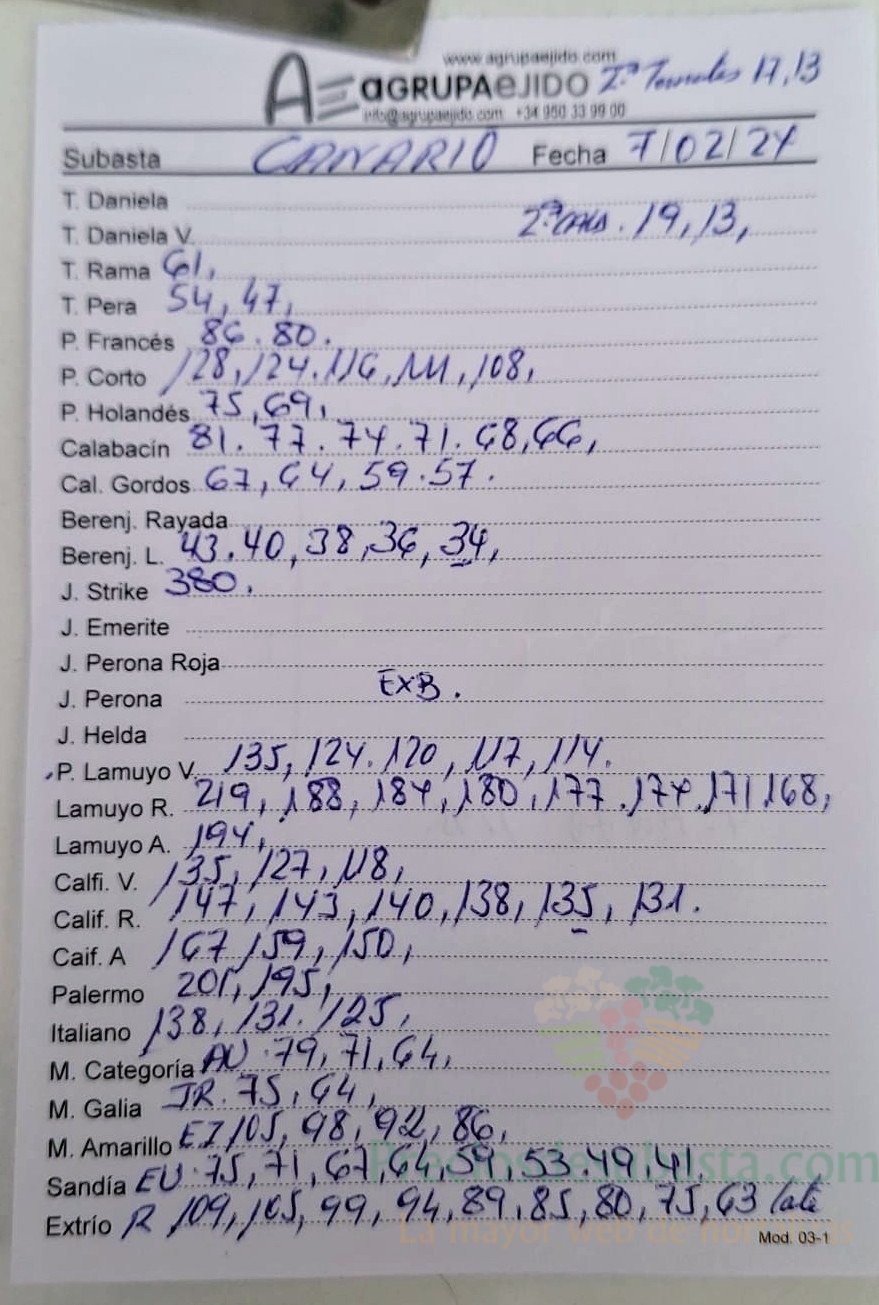 www.agrupaejido.com
AGRUPAEJIDO 2ª Tomates 17,13
info@agrupaejido.com +34 950 33 99 00
Subasta CANARIO Fecha 7/02/24
T. Daniela
T. Daniela V. 2ª CALA. 19, 13,
T. Rama 61,
T. Pera 54, 47,
P. Francés 86. 80.
P. Corto 128, 124. 116, 111, 108,
P. Holandés 75, 69,
Calabacín 81. 77. 74. 71. 68, 66,
Cal. Gordos 67, 64, 59. 57.
Berenj. Rayada
Berenj. L. 43. 40, 38, 36, 34,
J. Strike 380.
J. Emerite
J. Perona Roja
J. Perona EXB.
J. Helda
P. Lamuyo V. 135, 124. 120, 117, 114.
Lamuyo R. 219, 188, 184, 180, 177. 174. 171 168,
Lamuyo A. 194,
Calfi. V. 135, 127, 118,
Calif. R. 147, 143, 140, 138, 135, 131.
Caif. A 167 159, 150,
Palermo 201, 195,
Italiano 138, 131. 125,
M. Categoría AU. 79, 71, 64,
M. Galia JR. 75, 64,
M. Amarillo EJ 105, 98, 92, 86,
Sandía EU. 75, 71, 67, 64, 59, 53. 49, 41
Extrío R 109, 105, 99, 94, 89, 85, 80, 75, 63
Preciosdesubasta.com
La mayor web de hortalizas
Mod. 03-1